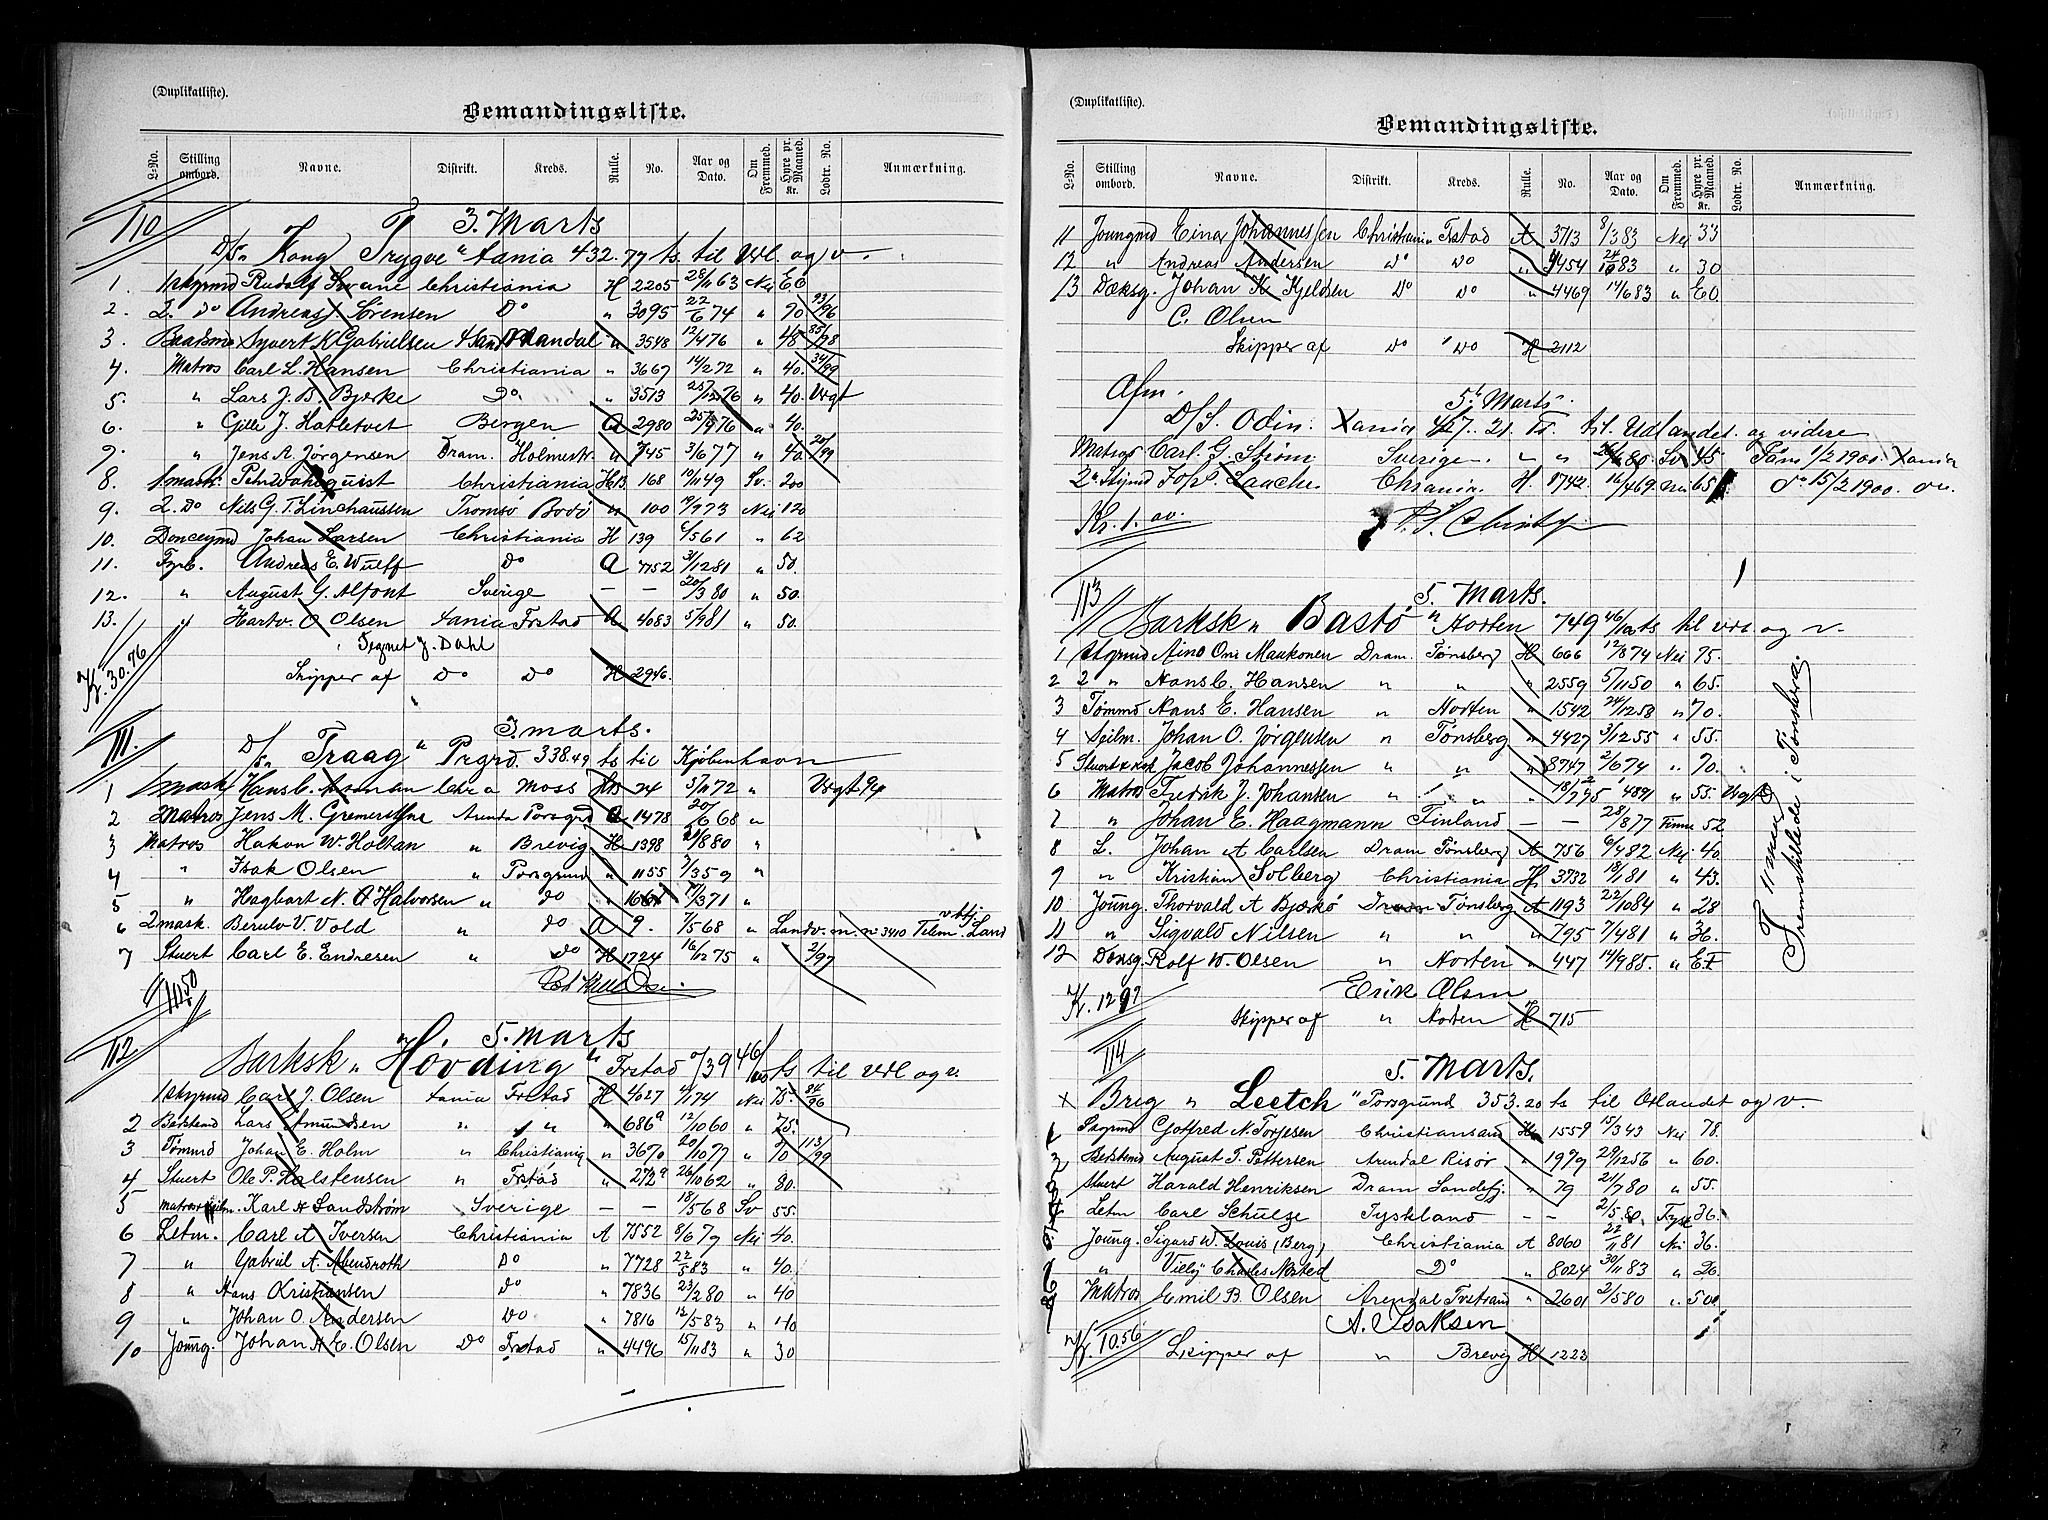 (Duplikatliste).
Bemandingsliste.
L-No. Stilling ombord. Navne. Distrikt. Kreds. Rulle. No. Aar og Dato. Om Fremmed. Hyre pr. Maaned. Kr. Lodtr. No. Anmærkning.
110 3. Marts
D/S „Kong Trygve“ Xania 432.77 ts. til Udl. og v.
1. 1 styrmd Rudolf Svane Christiania H 2205 28/11 63 Nei 60
2. 2. do Andreas J. Sørensen Do „ 3095 22/6 74 „ 70 93/96
3. Baadsmd Syvert K Gabrielsen Mandal „ 3548 12/4 76 „ 48 85/98
4. Matros Carl L. Hansen Christiania „ 3667 14/2 72 „ 40. 34/99
5. „ Lars J. B. Bjerke Do „ 3513 25/12 76 „ 40. Uvgt
6. „ Gille J. Hatletvet Bergen A 2980 25/9 76 „ 40.
7. „ Jens A. Jørgensen Dram. Holmestr. „ 745 3/6 77 „ 40. 20/99
8. 1 mask. Petr. Dahlquist Christiania HB 168 10/11 49 Sv. 200
9. 2. Do Nils G. T. Lindhaussen Tromsø Bodø „ 100 14/9 73 Nei 120
10. Donceymd Johan Larsen Christiania H 139 6/5 61 „ 62
11. Fyrb. Andreas E. Wulff Do A 7752 31/12 81 „ 50.
12. „ August G. Alfont Sverige — — 20/3 80 „ 50.
13. „ Hartv. O Olsen Xania Frstad A 4683 5/9 81 „ 50.
Segnet J. Dahl
Kr. 30.76 Skipper af Do Do H 2946.
111. 3. marts.
D/S „Traag“ Prgrd. 338.49 ts til Kjøbenhavn
1 1 mask Hans C. Aman Chra Moss HB 24 5/11 72 „ Uvgt 94
2 Matros Jens M. Gremertsne Arenda Porsgrd A 1478 20/6 68 „
3 Matros Hakon W. Holtan „ Brevig H 1398 21/8 80 „
4 „ Isak Olsen „ Porsgrund „ 1155 3/3 59 „
5 „ Hagbart N. A Halvorsen „ do „ 1661 11/3 71 „
6 2 mask. Berulv V. Vold „ do A 9. 7/5 68 „ Landv. m. no 3410 Telem. Land
7 Stuert Carl E. Endresen „ do H 1724 16/12 75 „ 2/97
11.50
112. 5. marts
Barksk „Høvding“ Frstad 739 46/100 ts til Udl og v.
1 styrmd Carl J. Olsen Xania Frstad H 4627 4/1 74 Nei 75. 84/96
2 Bedstmd Lars Amundsen „ „ „ 686a 12/10 60 „ 75.
3 Tømmd Johan E. Holm „ Christiania „ 3670 20/10 77 „ 70 113/99
4 Stuert Ole P. Halstensen „ Frstad „ 272a 26/10 62 „ 80.
5 matros & seilm. Karl A Sandstrøm Sverige — — 18/5 68 Sv 55.
6 Letm. Carl A Iversen Christiania A 7552 8/6 79 Nei 40.
7 „ Gabriel A. Abendroth Do „ 7728 22/5 83 „ 40.
8 „ Hans Kristiansen do „ 7836 23/2 80 „ 40
9 „ Johan O. Andersen Do „ 7816 12/5 83 „ 40
10 Joung. Johan A E. Olsen Do Frstad „ 4496 15/11 83 „ 30
(Duplikatliste).
Bemandingsliste.
L-No. Stilling ombord. Navne. Distrikt. Kreds. Rulle. No. Aar og Dato. Om Fremmed. Hyre pr. Maaned. Kr. Lodtr. No. Anmærkning.
11 Joungmd Einar Johannessen Christiania Frstad A 3713 8/3 83 Nei 33
12 „ Andreas Andersen do do „ 4454 24/10 83 „ 30
13 Dæksg. Johan K Kjeldsen Do Do „ 4469 14/6 83 „ 20
C. Olsen
Skipper af Do Do H 2112
Afm. 5. Marts.
D/S. Odin. Xania 427.21 T. til Udlandet og videre
Matros Carl. G. Strøm Sverige „ „ 26/6 80. Sv 45. Paam. 1/2 1900. Xania
2. Stymd Joh. Laache Chrania. H. 1742. 16/4 69 Nei 65 do 15/2 1900. do.
Kr. 1. ov.
113 5. Marts.
Barksk „Bastø“ Horten 749 46/100 ts til Udl og v.
1 Styrmd Aino Oni Maukonen Dram. Tønsberg H 666 12/8 74 Nei 75.
2 2 „ Hans C. Hansen „ „ „ 2559 5/11 50 „ 65.
3 Tømmd Hans E. Hansen „ Horten „ 1542 24/12 58 „ 70.
4 Seilm. Johan O. Jørgensen „ Tønsberg „ 4427 3/12 55 „ 55.
5 Stuert & Kok Jacob Johannessen „ „ „ 8747 2/6 74 „ 70.
6 Matros Fredrik J. Johansen „ „ „ 4891 „ 55. Uvgt
7 „ Johan E. Haagmann Finland — — 28/8 77 Finne 52
8 L. Johan A Carlsen Dram Tønsberg A 756 6/4 82 Nei 40.
9 „ Kristian Solberg Christiania H. 3732 18/1 81 „ 43.
10 Joung. Thorvald A Bjerkø Dram Tønsberg A 1193 22/10 84 „ 28
11 „ Sigvald Nilsen „ „ „ 795 7/4 81 „ 36.
12 Dæksg. Rolf W. Olsen „ Horten „ 447 14/9 85. „ 25
11 mand Fremstillede i Tønsberg.
Erik Olsen
K. 12.97 Skipper af „ Horten H 715
114 5. Marts.
x Brig „Leetch“ Porsgrund 353.20 ts til Udlandet og v.
1 Styrmd Gotfred N. Torjesen Christiansand H 1559 15/3 43 Nei 78.
2 Bedstmd August T. Pettersen Arendal Risør „ 1979 29/12 56 „ 60.
3 Stuert Harald Henriksen Dram Sandefj. „ 79 21/7 80 „ 55.
4 Letm Carl Schulze Tyskland — — 2/5 80. Tysk 36.
5 Joung. Sigurd W. Louis (Berg) Christiania A 8060 22/11 81 Nei 36.
6 „ Villy Charles Nøsted Do „ 8024 30/11 83 „ 26.
7 Matros Emil B. Olsen Arendal Tvstrand „ 2601 2/5 80 „ 50
A. Isaksen
Kr. 10.56 Skipper af „ Brevig H 1223